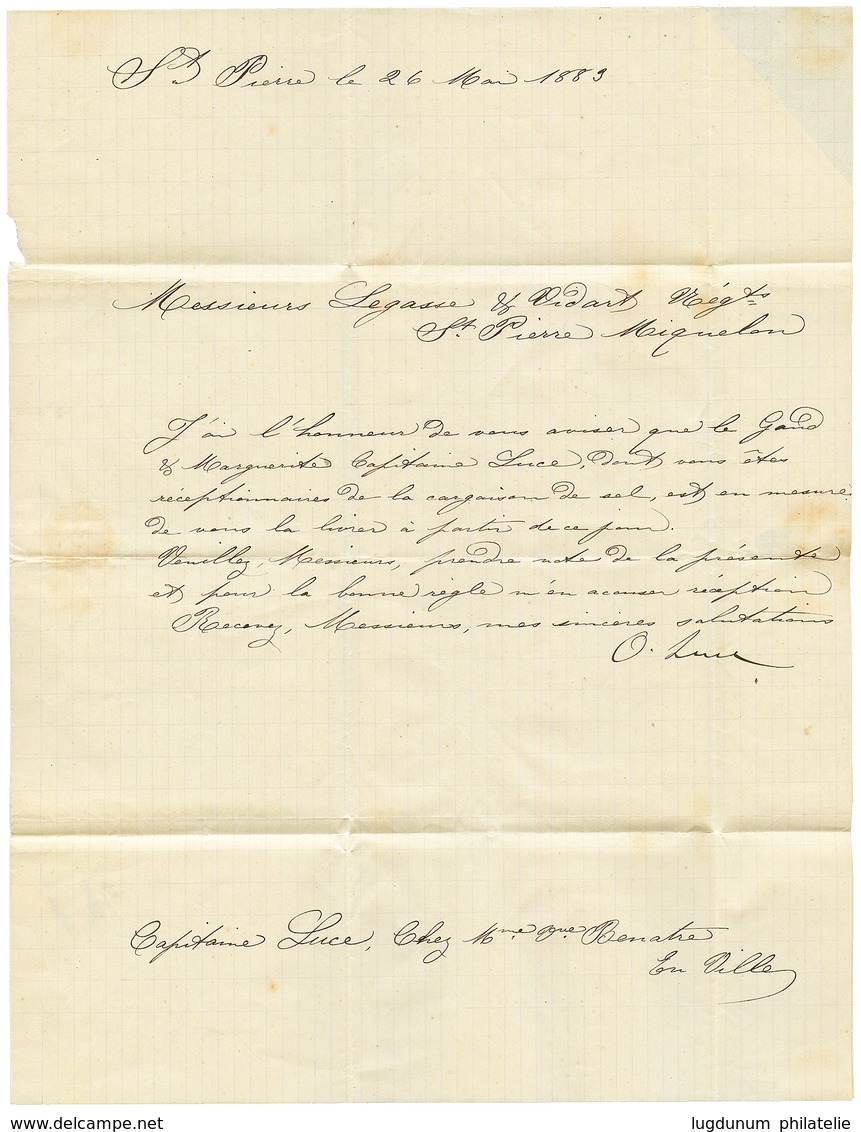 St Pierre le 26 Mai 1883
Messieurs Legasse & Vidart Négts
St. Pierre Miquelon
J'ai l'honneur de vous aviser que le Gand
& Marguerite Capitaine Luce, dont vous êtes
réceptionnaires de la cargaison de sel, est en mesure
de vous la livrer à partir de ce jour.
Veuillez, Messieurs, prendre note de la présente
et pour la bonne règle m'en accuser réception
Recevez, Messieurs, mes sincères salutations
O. Luce
Capitaine Luce, Chez Mme Vve Benatre
En Ville
www.delcampe.net
lugdunum philatelie